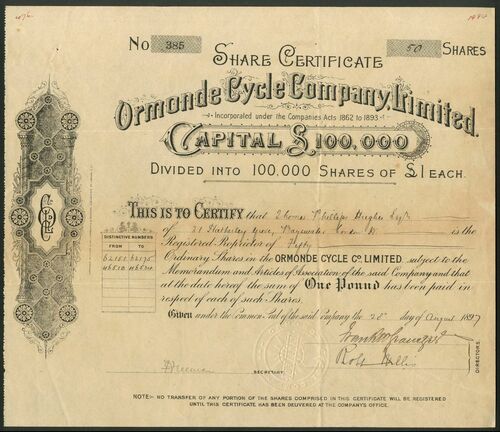 No 385
50 SHARES
SHARE CERTIFICATE
ORMONDE CYCLE COMPANY, LIMITED.
Incorporated under the Companies Acts 1862 to 1893
CAPITAL £100,000
DIVIDED INTO 100,000 SHARES OF £1 EACH.
THIS IS TO CERTIFY that Thomas Phillips Hughes Esqre
of 31 Grove, Bayswater London W is the
Registered Proprietor of Fifty
Ordinary Shares in the ORMONDE CYCLE CO. LIMITED. subject to the
Memorandum and Articles of Association of the said Company and that
at the date hereof the sum of One Pound has been paid in
respect of each of such Shares.
Given under the Common Seal of the said Company the 28 day of August 1897
DISTINCTIVE NUMBERS
FROM TO
DIRECTORS.
SECRETARY.
NOTE:- NO TRANSFER OF ANY PORTION OF THE SHARES COMPRISED IN THIS CERTIFICATE WILL BE REGISTERED
UNTIL THIS CERTIFICATE HAS BEEN DELIVERED AT THE COMPANYS OFFICE.